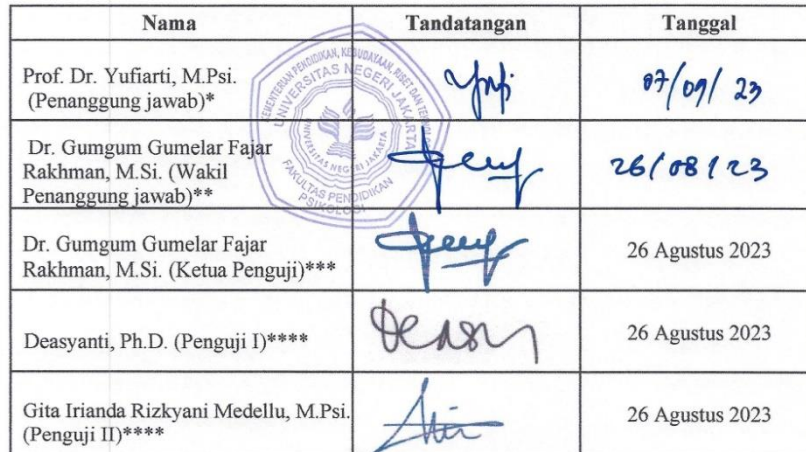 Nama Tandatangan Tanggal
Prof. Dr. Yufiarti, M.Psi.
(Penanggung jawab)*
07/09/23
Dr. Gumgum Gumelar Fajar
Rakhman, M.Si. (Wakil
Penanggung jawab)**
26/08/23
Dr. Gumgum Gumelar Fajar
Rakhman, M.Si. (Ketua Penguji)***
26 Agustus 2023
Deasyanti, Ph.D. (Penguji I)****
26 Agustus 2023
Gita Irianda Rizkyani Medellu, M.Psi.
(Penguji II)****
26 Agustus 2023
KEMENTERIAN PENDIDIKAN, KEBUDAYAAN, RISET DAN TEKNOLOGI
UNIVERSITAS NEGERI JAKARTA
FAKULTAS PENDIDIKAN
PSIKOLOGI